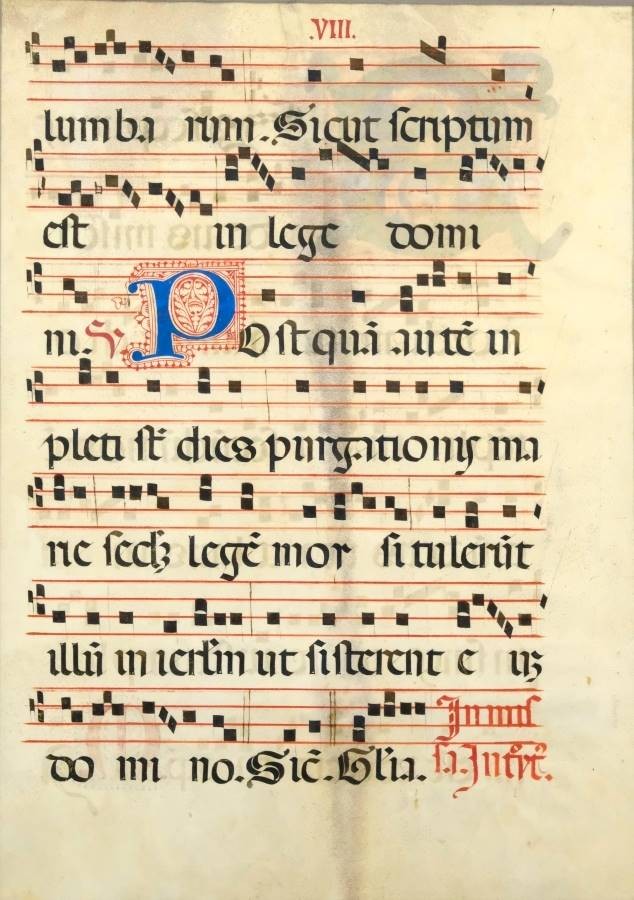 .VIII.
lumba rum. Sicut scriptum
est in lege domi
ni. V Postquā autē in
pleti st̄ dies purgationis ma
rie secdꝫ legē moy si tulerūt
illū in ierlm̄ ut sisterent e uꝫ
do mi no. Sic̄. Glīa. In mis
sa. Introyt.